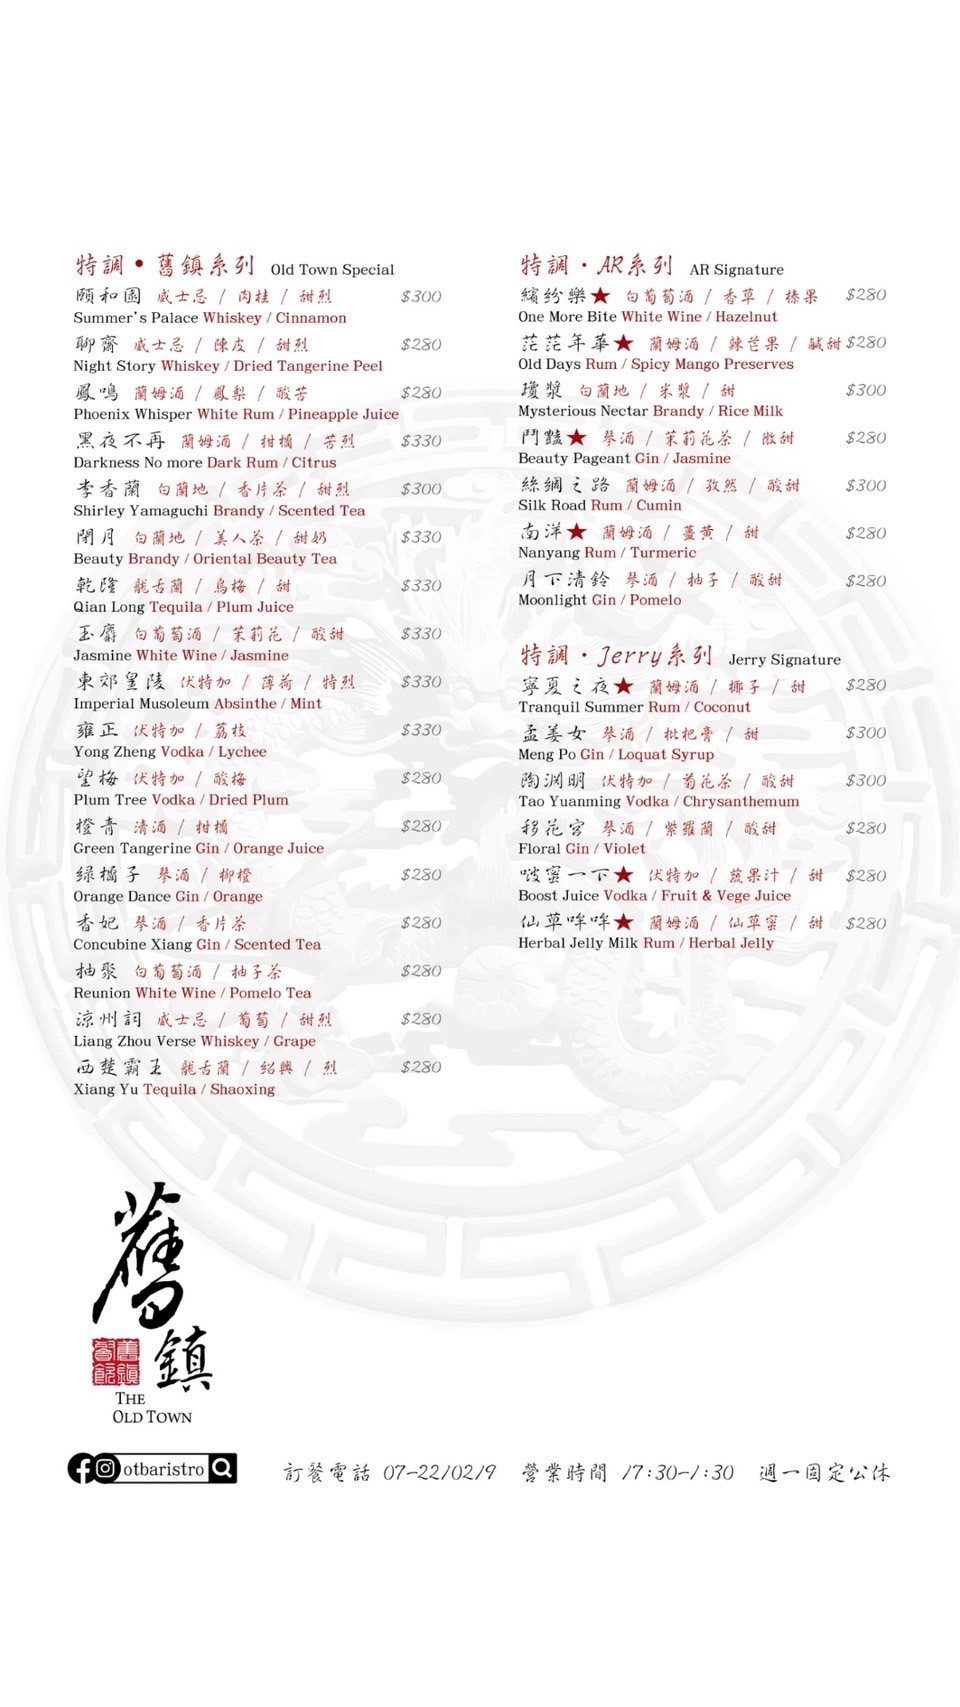 特調•舊鎮系列 Old Town Special
頤和園 威士忌 / 肉桂 / 甜烈 $300
Summer's Palace Whiskey / Cinnamon
聊齋 威士忌 / 陳皮 / 甜烈 $280
Night Story Whiskey / Dried Tangerine Peel
鳳鳴 蘭姆酒 / 鳳梨 / 酸苦 $280
Phoenix Whisper White Rum / Pineapple Juice
黑夜不再 蘭姆酒 / 柑橘 / 苦烈 $330
Darkness No more Dark Rum / Citrus
李香蘭 白蘭地 / 香片茶 / 甜烈 $300
Shirley Yamaguchi Brandy / Scented Tea
閉月 白蘭地 / 美人茶 / 甜奶 $330
Beauty Brandy / Oriental Beauty Tea
乾隆 龍舌蘭 / 烏梅 / 甜 $330
Qian Long Tequila / Plum Juice
玉麝 白葡萄酒 / 茉莉花 / 酸甜 $330
Jasmine White Wine / Jasmine
東郊皇陵 伏特加 / 薄荷 / 特烈 $330
Imperial Musoleum Absinthe / Mint
雍正 伏特加 / 荔枝 $330
Yong Zheng Vodka / Lychee
望梅 伏特加 / 酸梅 $280
Plum Tree Vodka / Dried Plum
橙青 清酒 / 柑橘 $280
Green Tangerine Gin / Orange Juice
綠橘子 琴酒 / 柳橙 $280
Orange Dance Gin / Orange
香妃 琴酒 / 香片茶 $280
Concubine Xiang Gin / Scented Tea
柚聚 白葡萄酒 / 柚子茶 $280
Reunion White Wine / Pomelo Tea
涼州詞 威士忌 / 葡萄 / 甜烈 $280
Liang Zhou Verse Whiskey / Grape
西楚霸王 龍舌蘭 / 紹興 / 烈 $280
Xiang Yu Tequila / Shaoxing
特調・AR系列 AR Signature
繽紛樂★ 白葡萄酒 / 香草 / 榛果 $280
One More Bite White Wine / Hazelnut
茫茫年華★ 蘭姆酒 / 辣芒果 / 鹹甜 $280
Old Days Rum / Spicy Mango Preserves
瓊漿 白蘭地 / 米漿 / 甜 $300
Mysterious Nectar Brandy / Rice Milk
鬥豔★ 琴酒 / 茉莉花茶 / 微甜 $280
Beauty Pageant Gin / Jasmine
絲綢之路 蘭姆酒 / 孜然 / 酸甜 $300
Silk Road Rum / Cumin
南洋★ 蘭姆酒 / 薑黃 / 甜 $280
Nanyang Rum / Turmeric
月下清鈴 琴酒 / 柚子 / 酸甜 $280
Moonlight Gin / Pomelo
特調・Jerry系列 Jerry Signature
寧夏之夜★ 蘭姆酒 / 椰子 / 甜 $280
Tranquil Summer Rum / Coconut
孟姜女 琴酒 / 枇杷膏 / 甜 $300
Meng Po Gin / Loquat Syrup
陶淵明 伏特加 / 菊花茶 / 酸甜 $300
Tao Yuanming Vodka / Chrysanthemum
移花宮 琴酒 / 紫羅蘭 / 酸甜 $280
Floral Gin / Violet
啵蜜一下★ 伏特加 / 蔬果汁 / 甜 $280
Boost Juice Vodka / Fruit & Vege Juice
仙草哞哞★ 蘭姆酒 / 仙草蜜 / 甜 $280
Herbal Jelly Milk Rum / Herbal Jelly
舊鎮
THE
OLD TOWN
otbaristro 訂餐電話 07-22/02/9 營業時間 17:30-1:30 週一固定公休